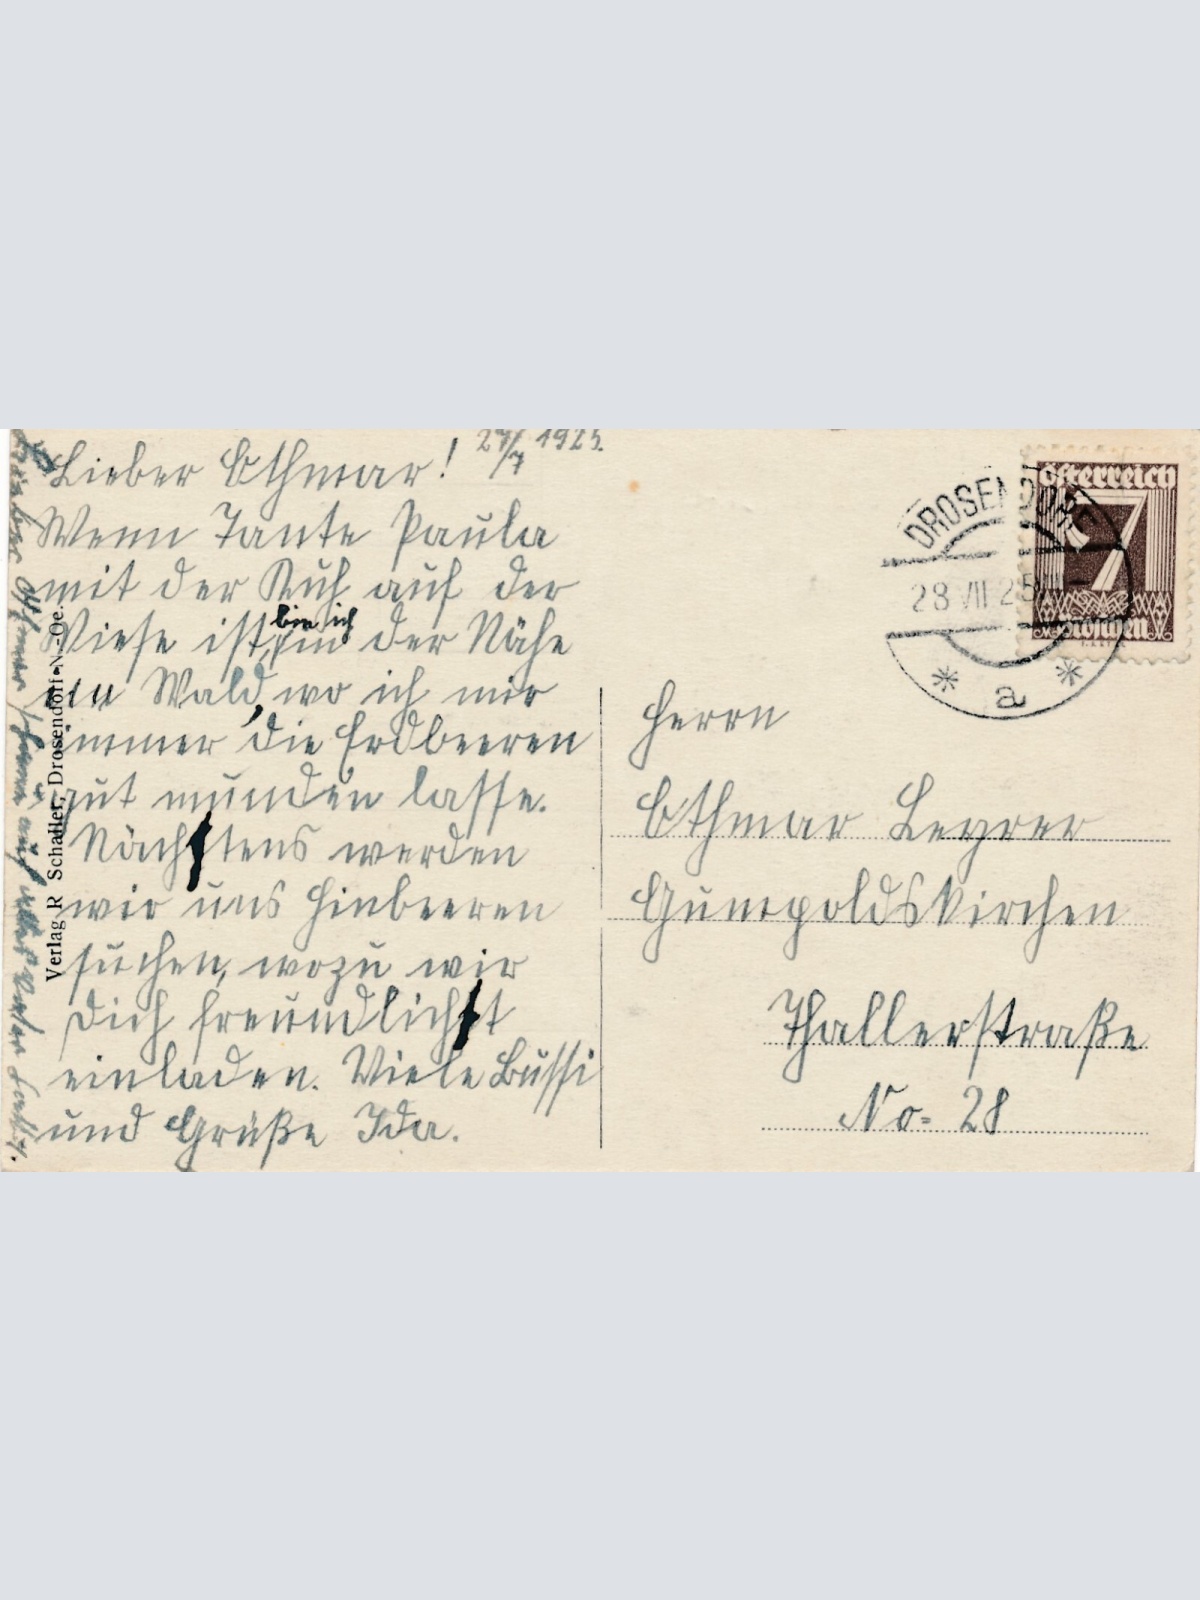 27/7 1925.
Lieber Othmar!
Wenn Tante Paula
mit der Kuh auf der
Wiese ist, bin ich in der Nähe
im Wald, wo ich mir
immer die Erdbeeren
gut munden lasse.
Nächstens werden
wir uns Himbeeren
suchen, wozu wir
Dich freundlichst
einladen. Viele Bussi
und Grüße Ida.
Lieber Othmar
Verlag R Schaller, Drosendorf N.-Oe.
DROSENDORF
28 VII 25
* a *
Österreich
7
Groschen
Herrn
Othmar Leyrer
Gumpoldskirchen
Thallerstraße
No= 28